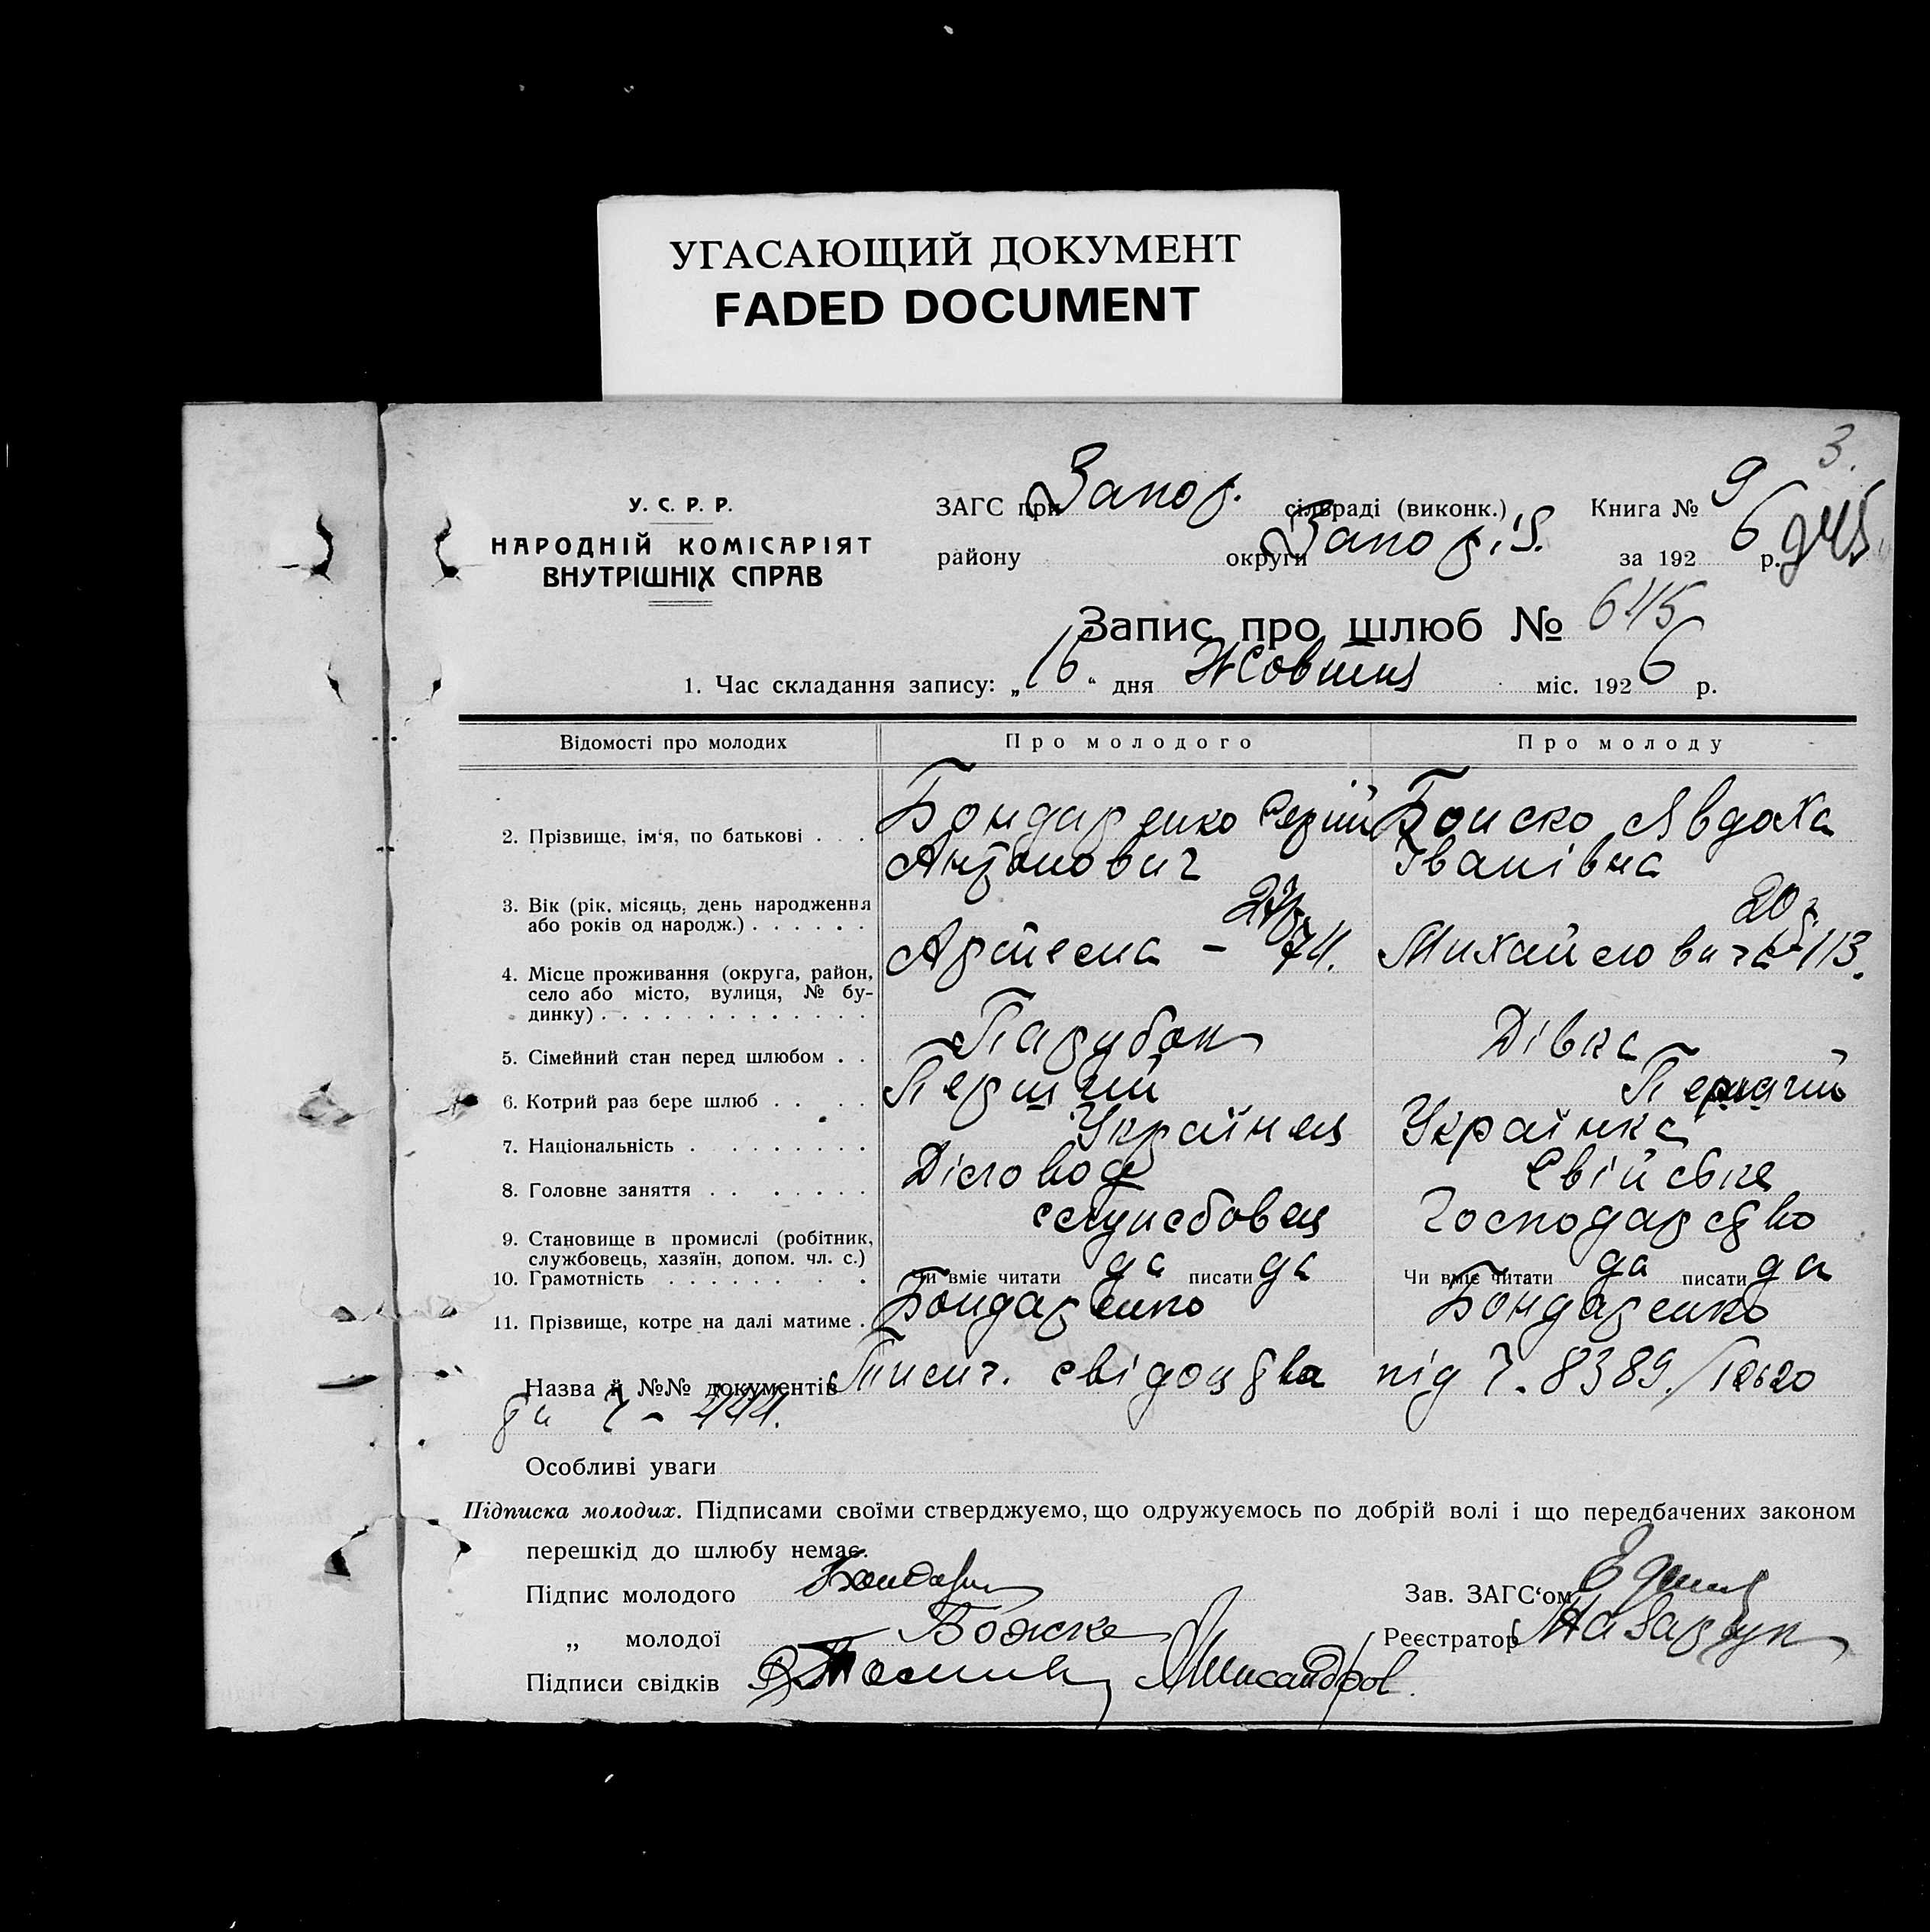 УГАСАЮЩИЙ ДОКУМЕНТ
FADED DOCUMENT
3.
У. С. Р. Р.
НАРОДНІЙ КОМІСАРІЯТ
ВНУТРІШНІХ СПРАВ
ЗАГС при Запор. сільраді (виконк.) Книга № 9
району округи Запоріз. за 1926 р.
Запис про шлюб № 645
1. Час складання запису: „16" дня Жовтня міс. 1926 р.
Відомості про молодих Про молодого Про молоду
2. Прізвище, ім'я, по батькові . . . Бондаренко Сергій Явдоха
Антонович Іванівна
3. Вік (рік, місяць, день народження
або років од народж.) . . . . . . 20 р.
Артема - 74. Михайловича 113.
4. Місце проживання (округа, район,
село або місто, вулиця, № бу-
динку) . . . . . . . . . . . . .
5. Сімейний стан перед шлюбом . . Парубок Дівка
6. Котрий раз бере шлюб . . . . Перший Перший
7. Національність . . . . . . . . Українец Українка
8. Головне заняття . . . . . . . Діловод Свійське
службовец Господарство
9. Становище в промислі (робітник,
службовець, хазяїн, допом. чл. с.)
10. Грамотність . . . . . . . . Чи вміє читати да писати да Чи вміє читати да писати да
11. Прізвище, котре на далі матиме . Бондаренко Бондаренко
Назва й №№ документів Тимч. свідоцтва під ч. 8389/12620
та ч - 444.
Особливі уваги
Підписка молодих. Підписами своїми стверджуємо, що одружуємось по добрій волі і що передбачених законом
перешкід до шлюбу немає.
Підпис молодого Зав. ЗАГС'ом
„ молодої Божко Реєстратор Назарчук
Підписи свідків